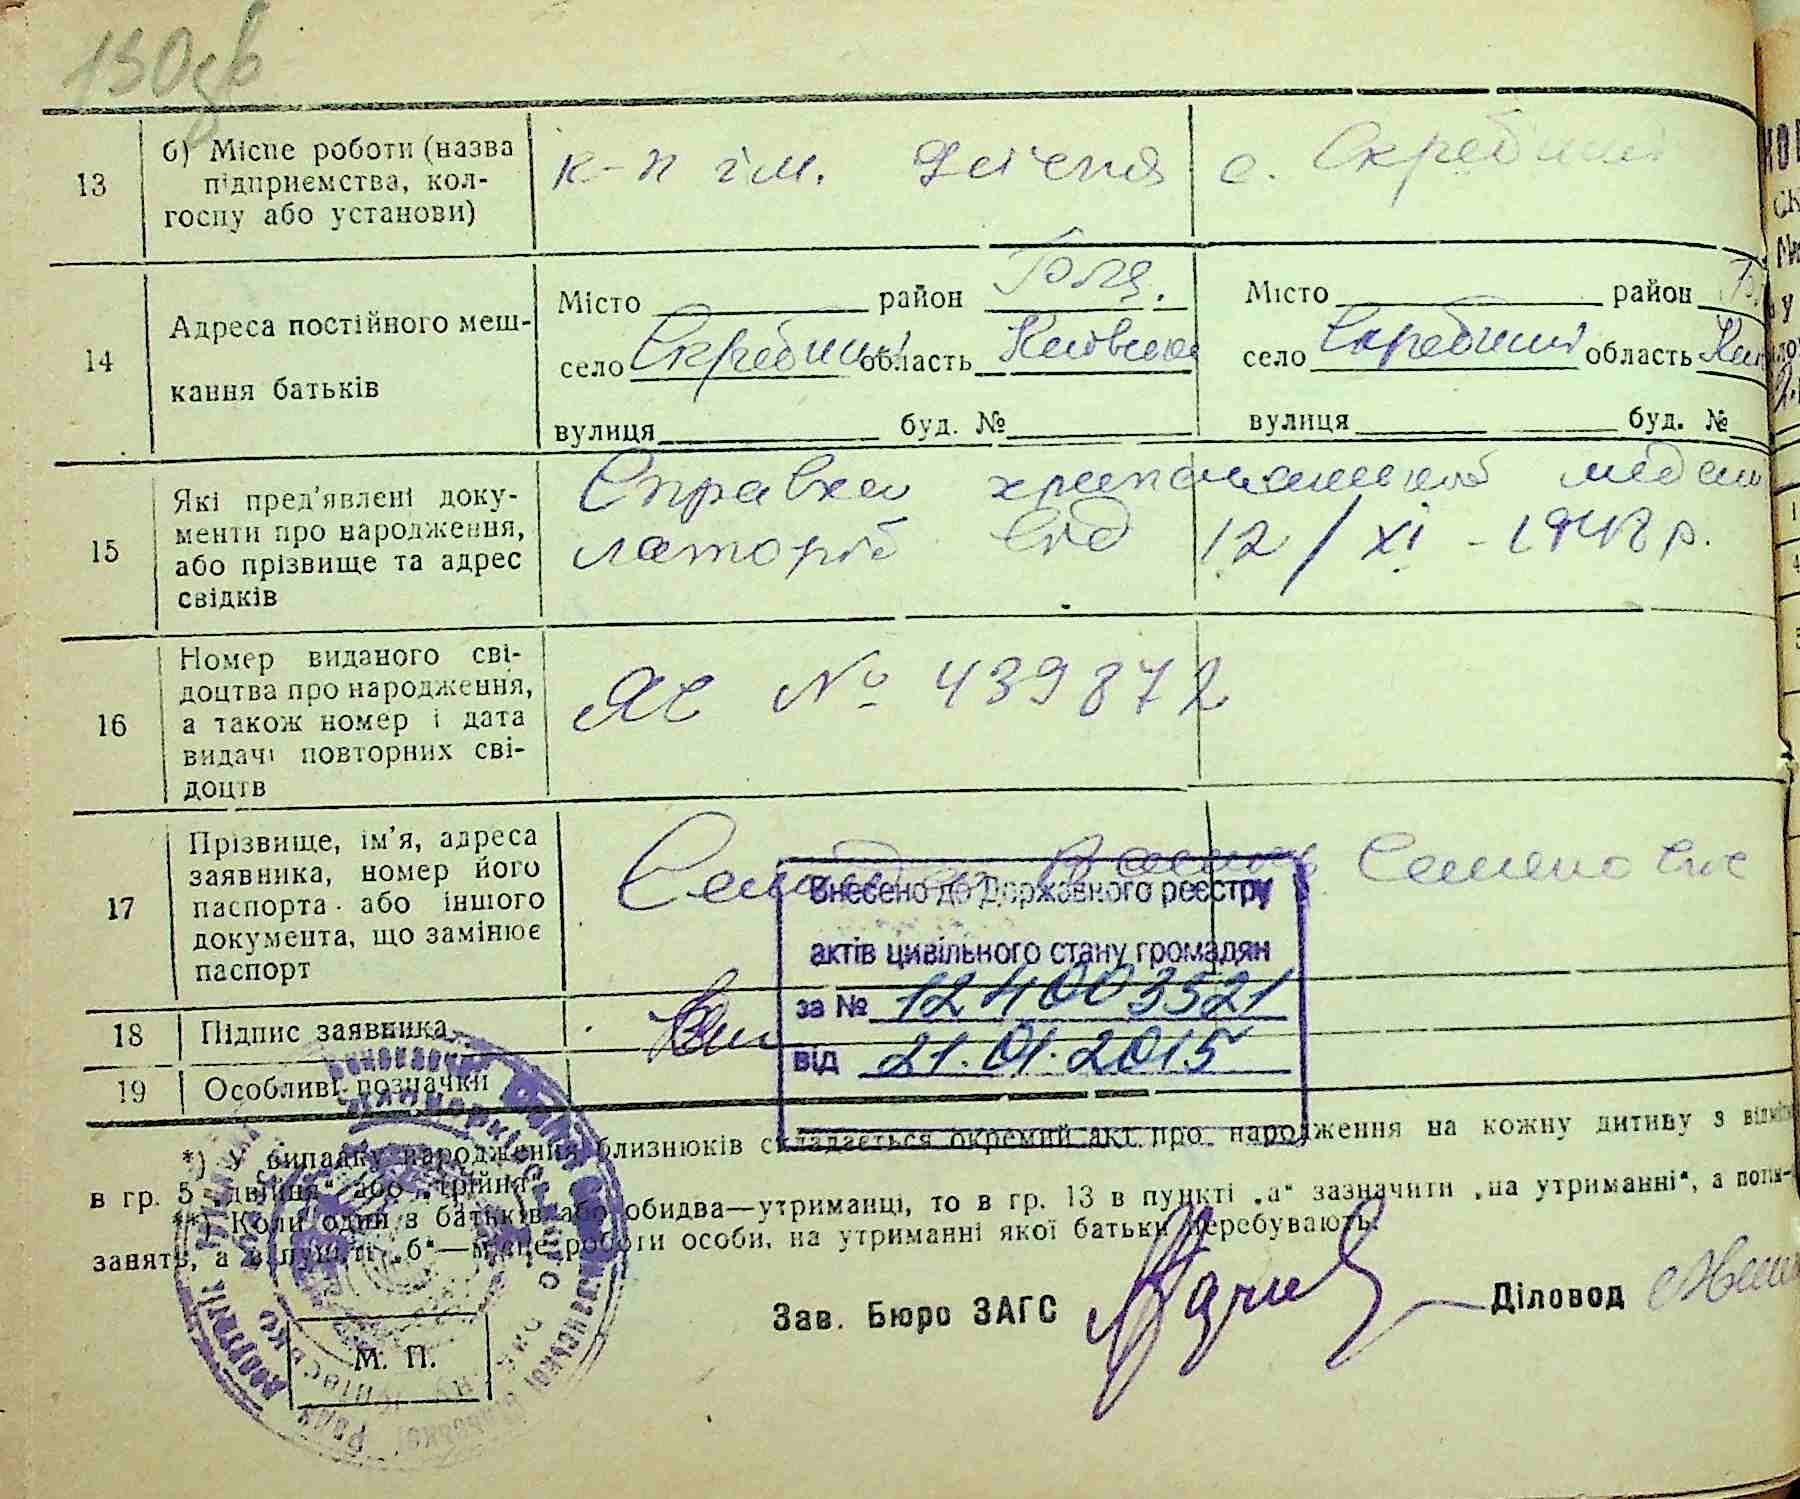 130зв
13 б) Місце роботи (назва
підприємства, кол-
госпу або установи)
к-п ім. с. Скребиші
14 Адреса постійного меш-
кання батьків
Місто район
село Скребиші область
вулиця буд. №
Місто район
село Скребиші область
вулиця буд. №
15 Які пред'явлені доку-
менти про народження,
або прізвище та адрес
свідків
Справка
від 12/XI - 1948 р.
16 Номер виданого сві-
доцтва про народження,
а також номер і дата
видачі повторних сві-
доцтв
ЯС № 439872
17 Прізвище, ім'я, адреса
заявника, номер його
паспорта або іншого
документа, що замінює
паспорт
Семенович
Внесено до Державного реєстру
актів цивільного стану громадян
за № 12400 3521
від 21.01.2015
18 Підпис заявника
19 Особливі позначки
*) У випадку народження близнюків складається окремий акт про народження на кожну дитину з відміт
в гр. 5 „двійня“ або „трійня“.
**) Коли один з батьків або обидва—утриманці, то в гр. 13 в пункті „а“ зазначити „на утриманні“, а
занять, а в пункті „б“—місце роботи особи, на утриманні якої батьки перебувають.
Зав. Бюро ЗАГС Діловод
М. П.